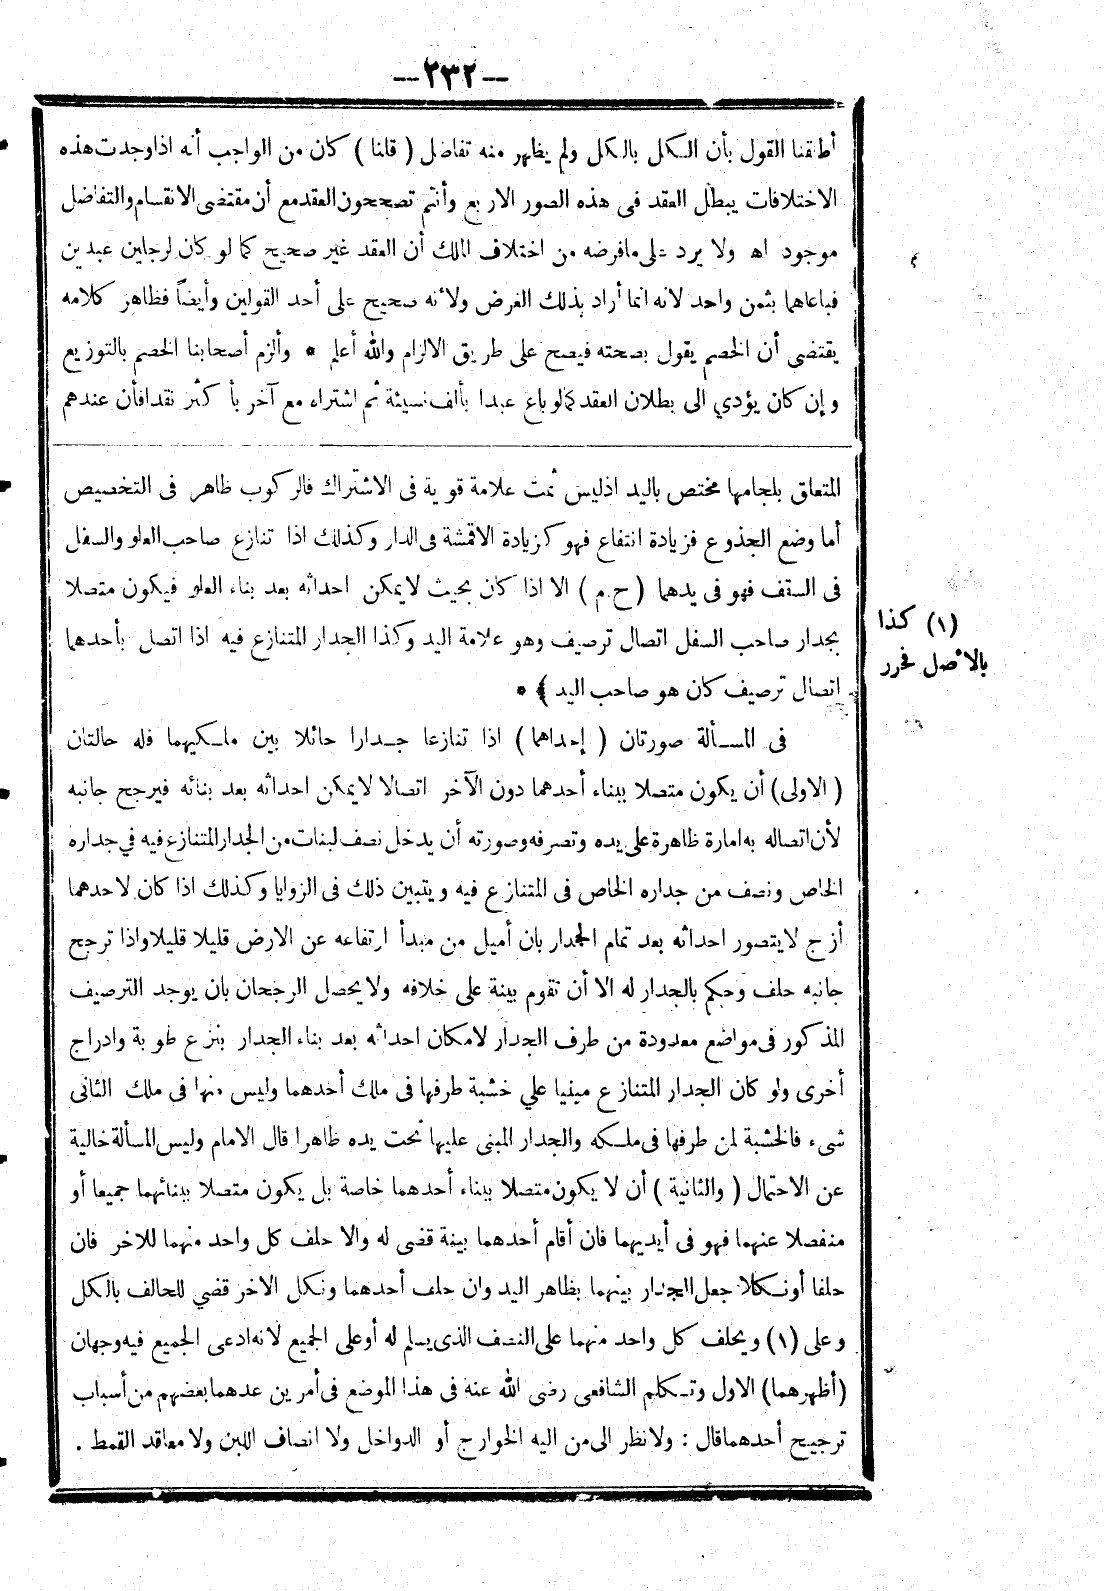 --٢٣٢--
أطلقنا القول بأن الكل بالكل ولم يظهر منه تفاضل ( قلنا ) كان من الواجب أنه اذا وجدت هذه
الاختلافات يبطل العقد فى هذه الصور الاربع وأنتم تصححون العقد مع أن مقتضى الانقسام والتفاضل
موجود اه ولا يرد على مافرضه من اختلاف المالك أن العقد غير صحيح كما لو كان لرجلين عبدين
فباعاهما بثمن واحد لانه انما أراد بذلك الفرض ولأنه صحيح على أحد القولين وأيضاً فظاهر كلامه
يقتضى أن الخصم يقول بصحته فيصح على طريق الالزام والله أعلم * وألزم أصحابنا الخصم بالتوزيع
وإن كان يؤدي الى بطلان العقد كما لو باع عبدا بألف نسيئة ثم اشتراه مع آخر بأكثر نقدا فأن عندهم
المتعلق بلجامها مختص باليد اذليس ثمت علامة قوية فى الاشتراك فالركوب ظاهر فى التخصيص
أما وضع الجذوع فزيادة انتفاع فهو كزيادة الاقمشة فى الدار وكذلك اذا تنازع صاحب العلو والسفل
فى السقف فهو فى يدهما ( ح م ) الا اذا كان بحيث لايمكن احداثه بعد بناء العلو فيكون متصلا
بجدار صاحب السفل اتصال ترصيف وهو علامة اليد وكذا الجدار المتنازع فيه اذا اتصل بأحدهما
اتصال ترصيف كان هو صاحب اليد ﴾ *
فى المسألة صورتان ( إحداهما ) اذا تنازعا جدارا حائلا بين ملكيهما فله حالتان
( الاولى) أن يكون متصلا ببناء أحدهما دون الآخر اتصالا لايمكن احداثه بعد بنائه فيرجح جانبه
لأن اتصاله به امارة ظاهرة على يده وتصرفه وصورته أن يدخل نصف لبنات من الجدار المتنازع فيه في جداره
الخاص ونصف من جداره الخاص فى المتنازع فيه ويتبين ذلك فى الزوايا وكذلك اذا كان لاحدهما
أزج لايتصور احداثه بعد تمام الجدار بان أميل من مبدأ ارتفاعه عن الارض قليلا قليلا واذا ترجح
جانبه حلف وحكم بالجدار له الا أن تقوم بينة على خلافه ولا يحصل الرجحان بان يوجد الترصيف
المذكور فى مواضع معدودة من طرف الجدار لامكان احداثه بعد بناء الجدار بنزع طوبة وادراج
أخرى ولو كان الجدار المتنازع مبنيا علي خشبة طرفها فى ملك أحدهما وليس منها فى ملك الثانى
شىء فالخشبة لمن طرفها فى ملكه والجدار المبنى عليها تحت يده ظاهرا قال الامام وليس المسألة خالية
عن الاحتمال ( والثانية ) أن لا يكون متصلا ببناء أحدهما خاصة بل يكون متصلا ببنائهما جميعا أو
منفصلا عنهما فهو فى أيديهما فان أقام أحدهما بينة قضى له والا حلف كل واحد منهما للآخر فان
حلفا أونكلا جعل الجدار بينهما بظاهر اليد وان حلف أحدهما ونكل الاخر قضي للحالف بالكل
وعلى (١) ويحلف كل واحد منهما على النصف الذى يسلم له أوعلى الجميع لانه ادعى الجميع فيه وجهان
(أظهرهما) الاول وتكلم الشافعى رضى الله عنه فى هذا الموضع فى أمرين عدهما بعضهم من أسباب
ترجيح أحدهما قال : ولا نظر الى من اليه الخوارج أو الدواخل ولا انصاف اللبن ولا معاقد القمط .
(١) كذا
بالأصل فحرر